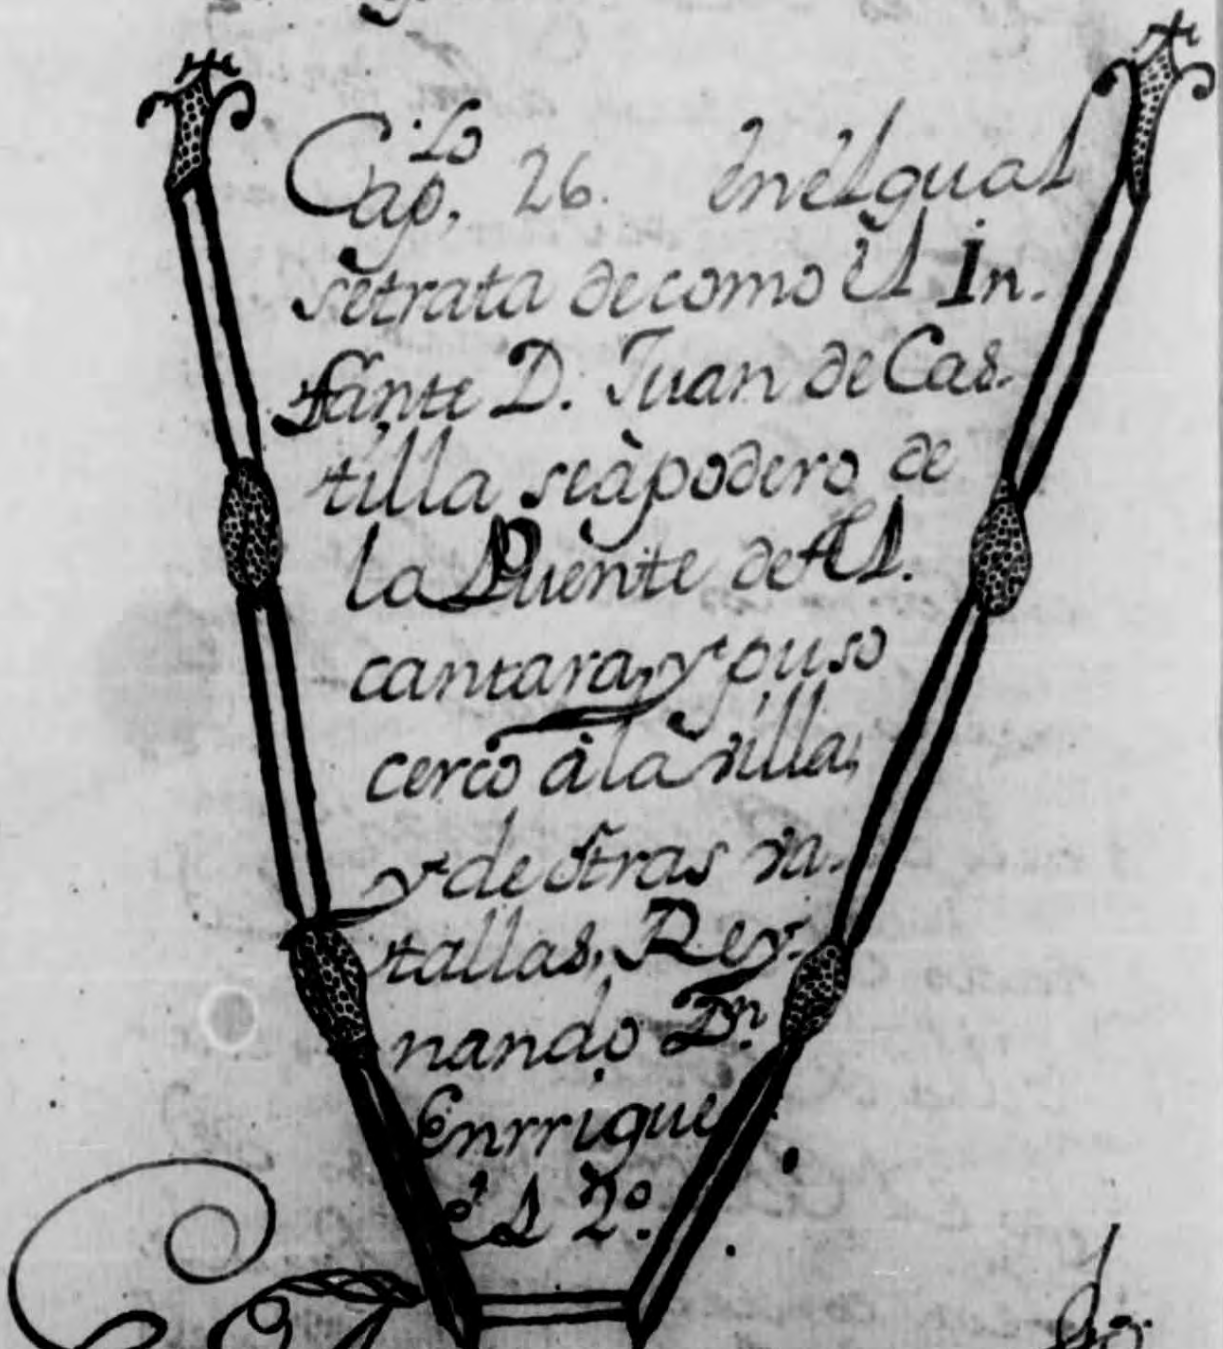 Cap.lo 26. En èl qual
se trata de como èl In-
fante D. Juan de Cas-
tilla se àpodero de
la Puente de Al-
cantara, y puso
cerco à la villa,
y de òtras va-
tallas, Rey-
nando Dn.
Enrrique
èl 2º.